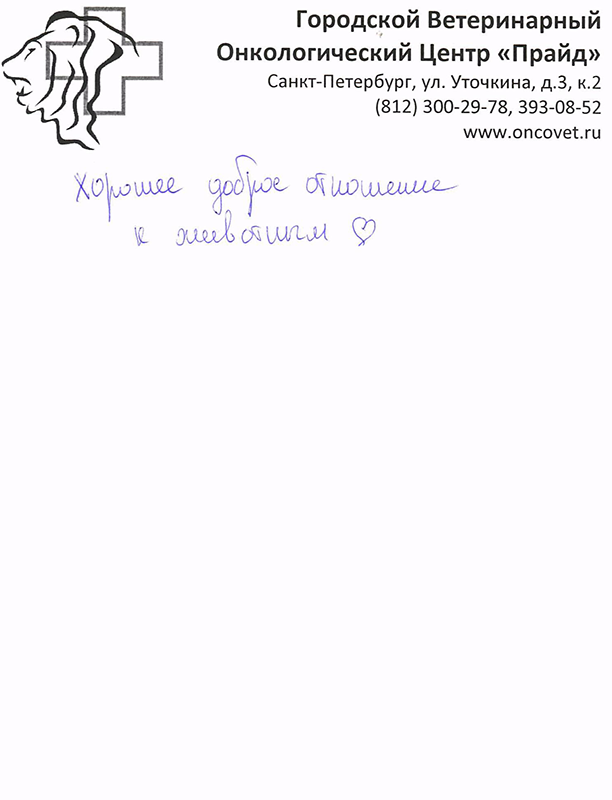 Городской Ветеринарный
Онкологический Центр «Прайд»
Санкт-Петербург, ул. Уточкина, д.3, к.2
(812) 300-29-78, 393-08-52
www.oncovet.ru
Хорошее доброе отношение
к животным ♡